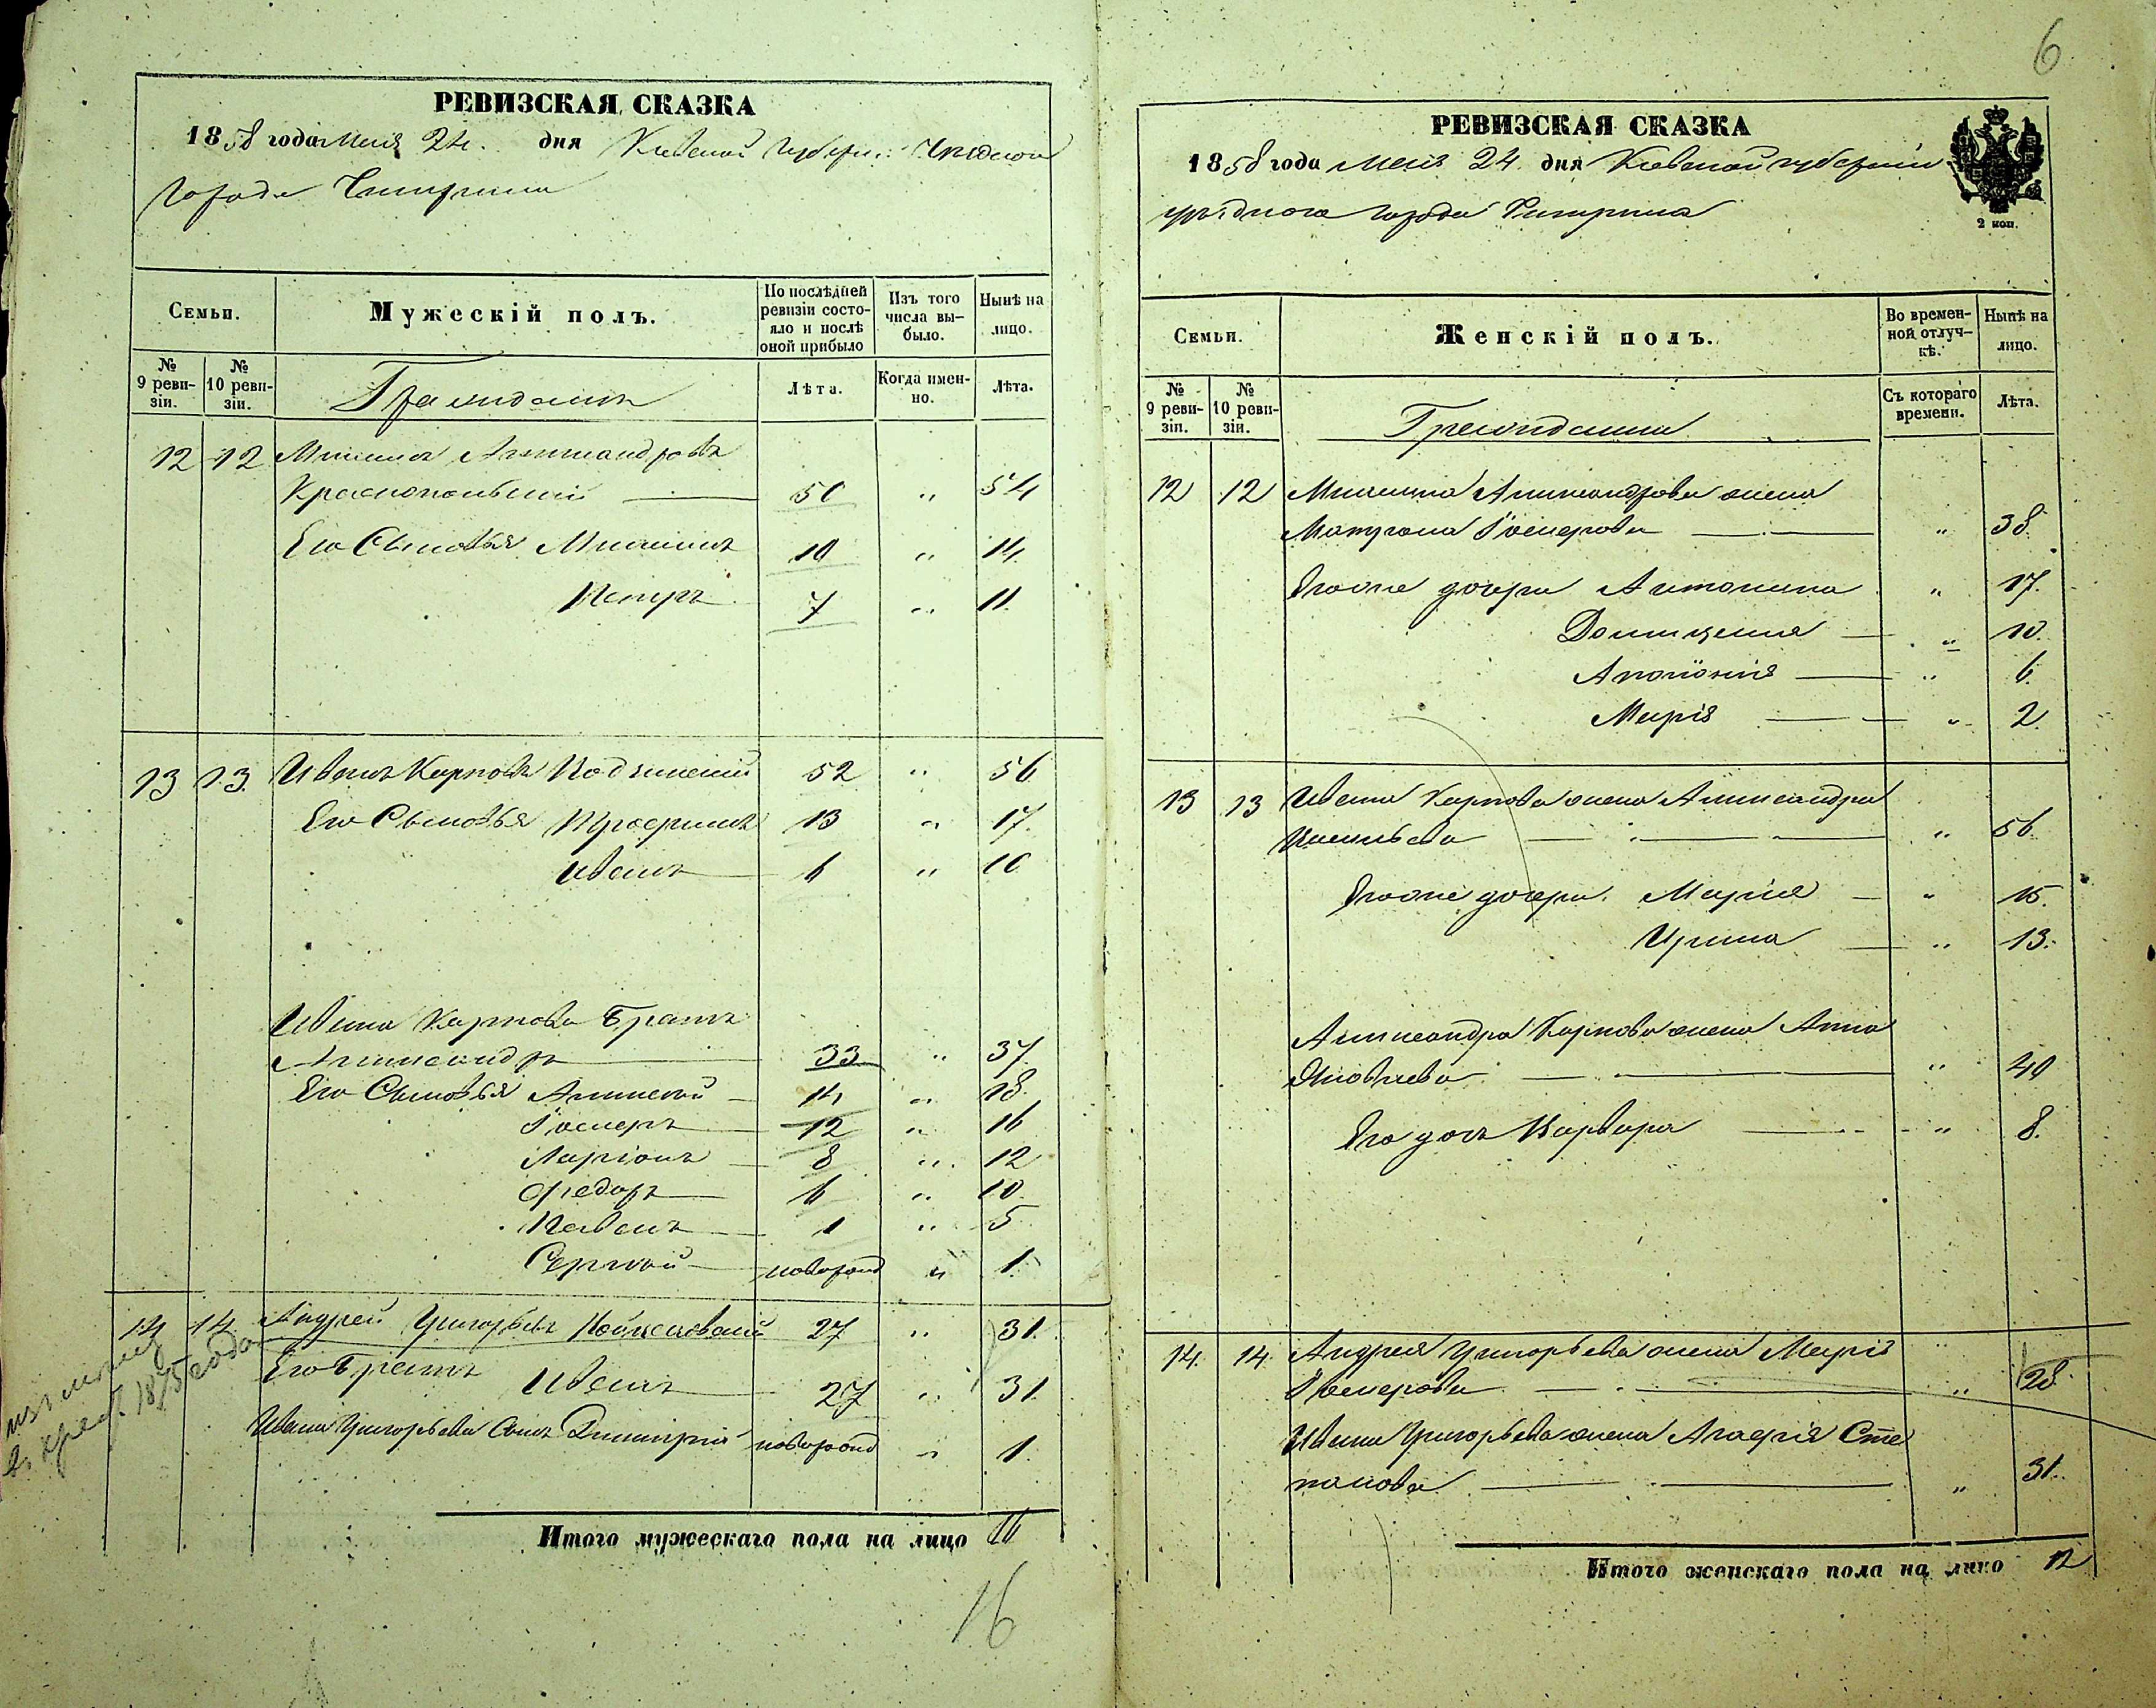 6
РЕВИЗСКАЯ СКАЗКА
1858 года Мая 24 дня Киевской Губерніи Уѣзднаго
Города Чигирина
Семьи.
Мужескій полъ.
По послѣдней ревизіи состояло и послѣ оной прибыло
Изъ того числа выбыло.
Нынѣ на лицо.
№ 9 ревизіи.
№ 10 ревизіи.
Граждане
Лѣта.
Когда именно.
Лѣта.
12 12 Михаилъ Александровъ
Краснопольскій 50 " 54
Его Сыновья Михаилъ 10 " 14.
Петръ 7 " 11.
13 13. Иванъ Карповъ 52 " 56
Его Сыновья 13 " 17.
Иванъ 6 " 10
Ивана Карпова Братъ
Александръ 33 " 37.
Его Сыновья Алексей 14 " 18.
Іосифъ 12 " 16
Ларіонъ 8 " 12
Федоръ 6 " 10.
Павелъ 1 " 5
Сергѣй новорожд " 1
14 14. Андрей Григорьевъ 27 " 31.
Его Братъ Иванъ 27 " 31.
Ивана Григорьева Сынъ Димитрій новорожд " 1.
Итого мужескаго пола на лицо 16
16
РЕВИЗСКАЯ СКАЗКА
1858 года Мая 24 дня Киевской губерніи
уѣзднаго города Чигирина
2 коп.
Семьи.
Женскій полъ.
Во временной отлучкѣ.
Нынѣ на лицо.
№ 9 ревизіи.
№ 10 ревизіи.
Граждане
Съ котораго времени.
Лѣта.
12 12 Михаила Александрова жена
Матрона " 38.
Его же дочери Антонина " 17.
Домицелія " 10.
Аполонія " 6.
Марія " 2.
13 13 Ивана Карпова жена Александра
" 56.
Его же дочери Марія " 15.
Ирина " 13.
Александра Карпова жена Анна
Яковлева " 40
Его дочь Варвара " 8.
14. 14. Андрея Григорьева жена Марія
" 28.
Ивана Григорьева жена Агафія Сте
панова " 31.
Итого женскаго пола на лицо 12